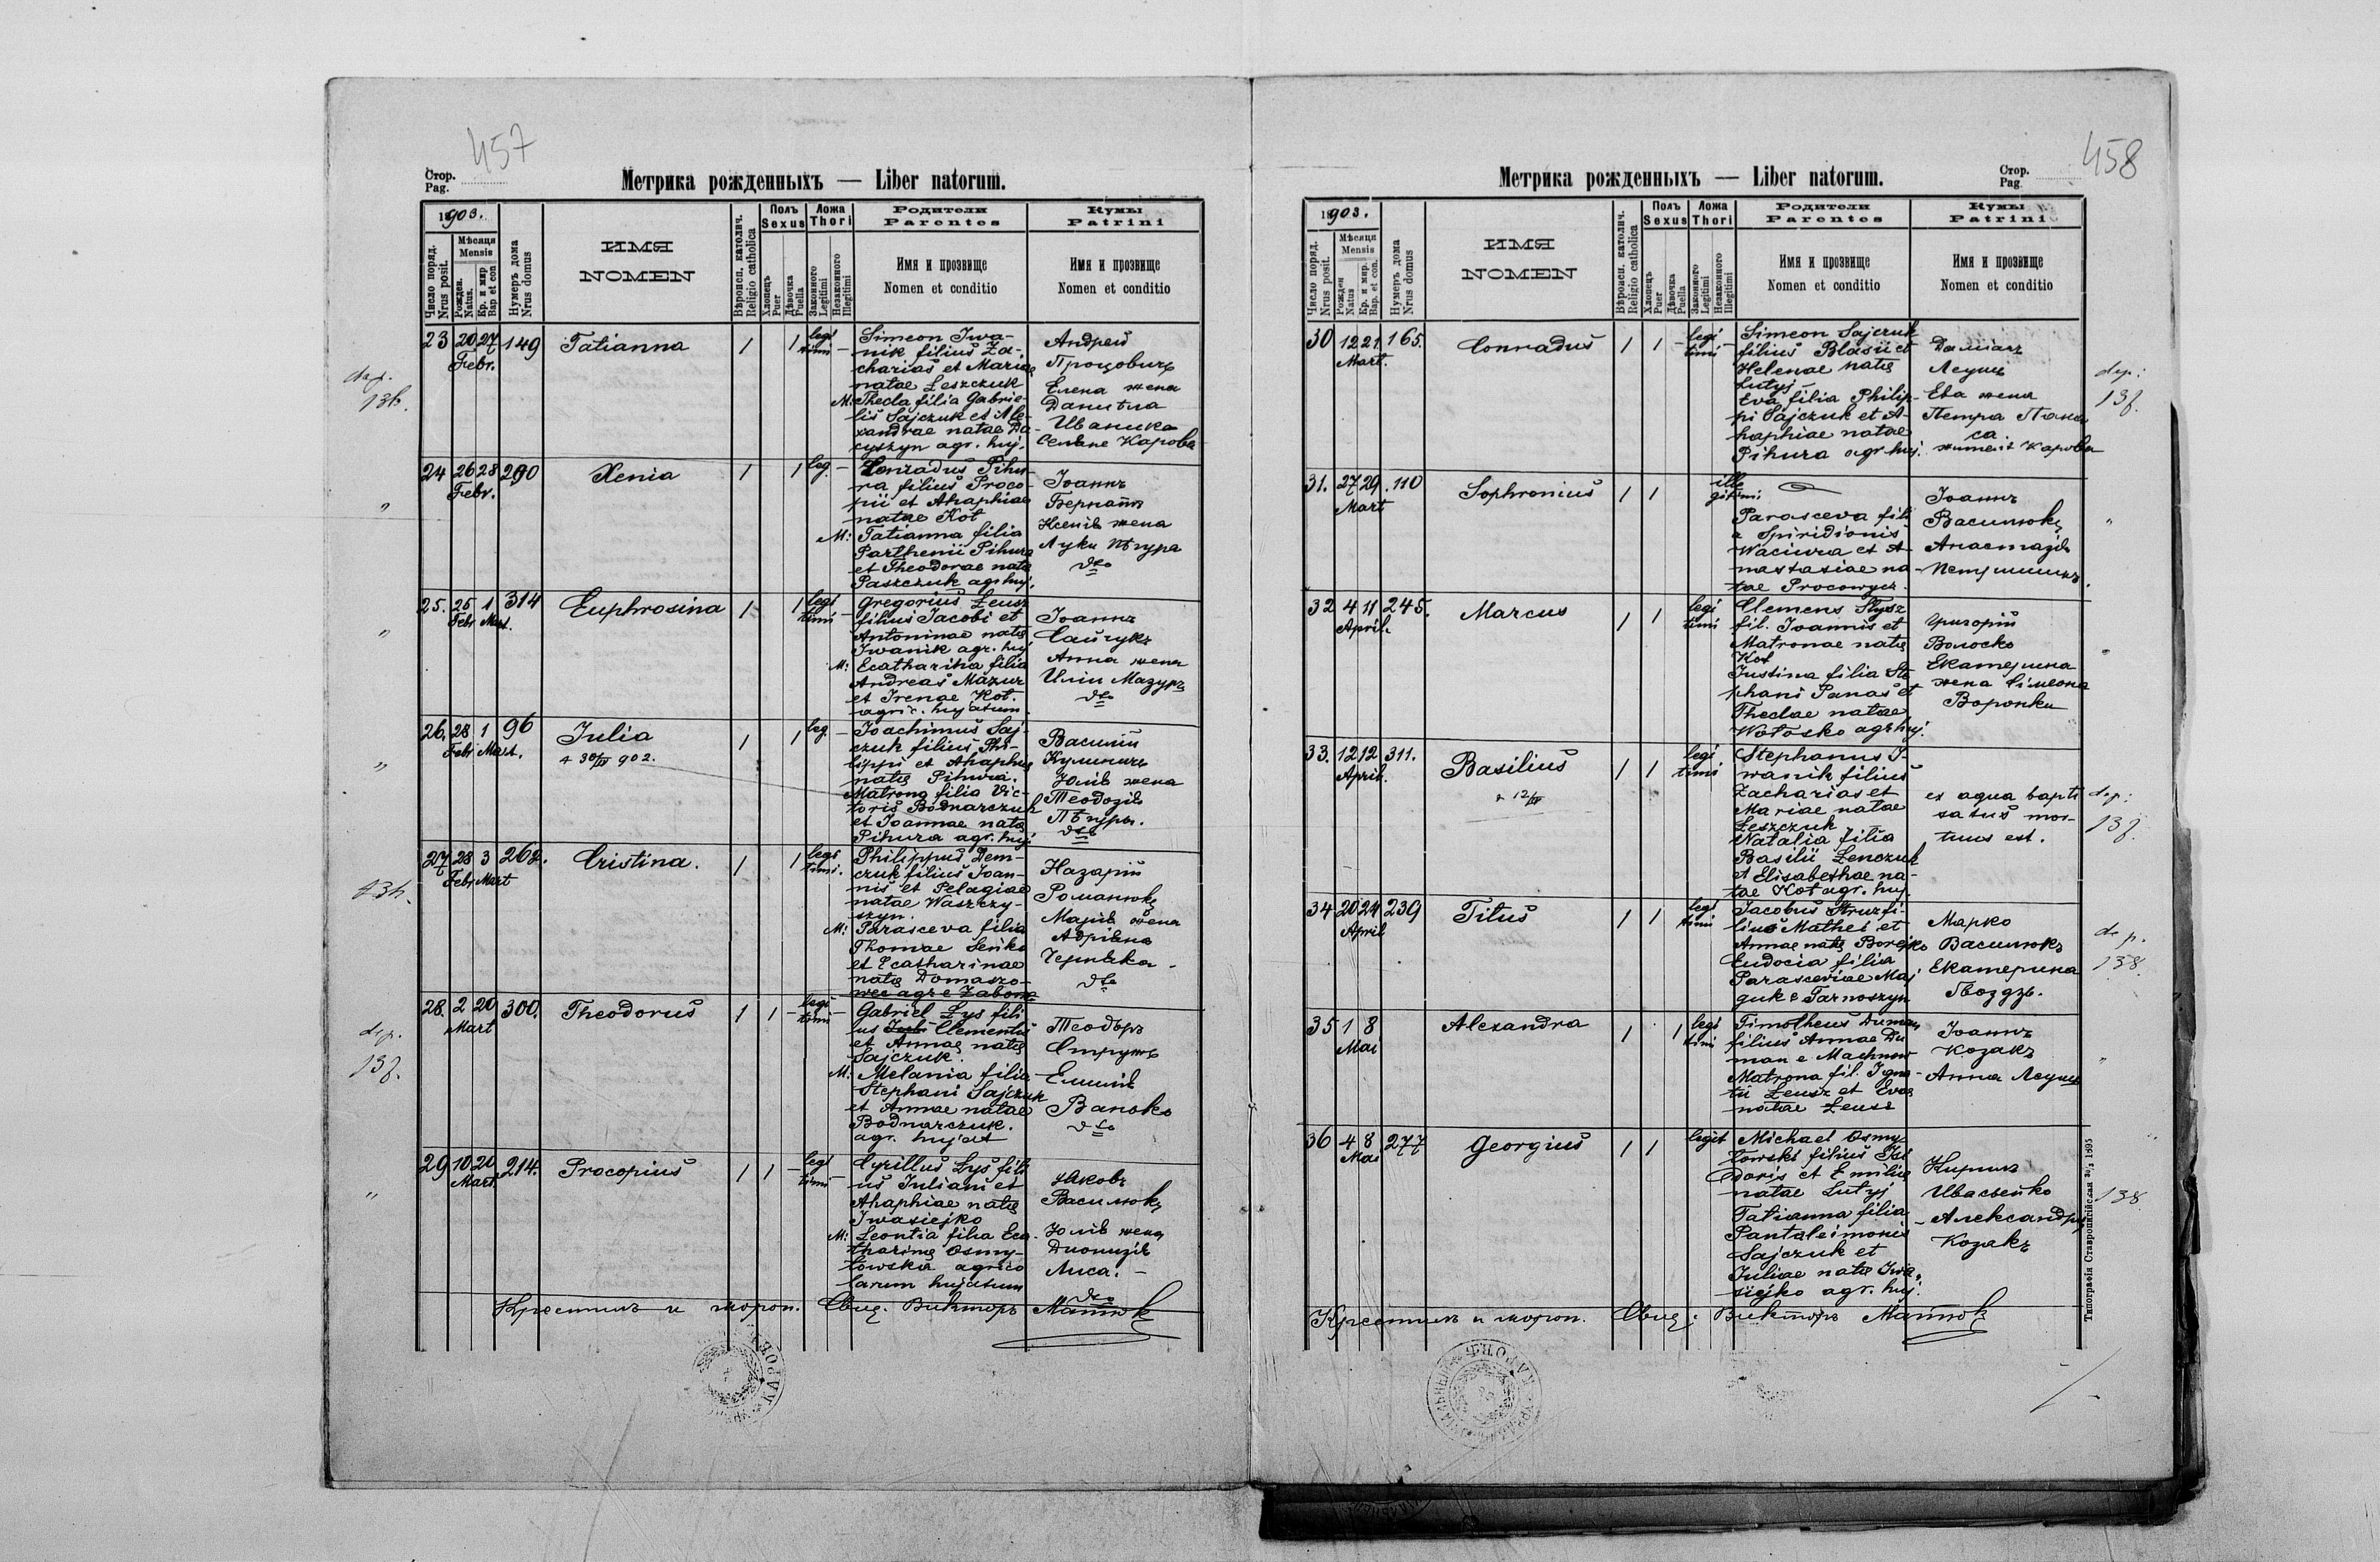 457
Стор.
Pag.
Метрика рожденныхъ — Liber natorum.
1903.
Число поряд.
Nrus posit.
Мѣсяця
Mensis
Рожден.
Natus.
Кр. и мѵр
Bap et con
Нумеръ дома
Nrus domus
ИМЯ
NOMEN
Вѣроисп. католич.
Religio catholica
Полъ
Sexus
Хлопецъ
Puer
Дѣвочка
Puella
Ложа
Thori
Законного
Legitimi
Незаконного
Illegitimi
Родители
Parentes
Имя и прозвище
Nomen et conditio
Кумы
Patrini
Имя и прозвище
Nomen et conditio
23 20 27 149 Tatianna 1 1 legi
Febr. timi
Simeon Iwa-
nik filius Za-
charias et Mariae
natae Leszczuk
M: Thecla filia Gabrie-
lis Sajczuk et Ale-
xandrae natae Da-
cyszyn agr. huj.
Андрей
Процовичъ
Елена жена
Данiѣла
Иваника
Селяне Карова
24 26 28 290 Xenia 1 1 leg.
Febr.
Conradus Pihu-
ra filius Proco-
pii et Ahaphiae
natae Kot
M: Tatianna filia
Parthenii Pihura
et Theodorae natę
Paszczuk agr huj.
Іоаннъ
Ксенiя жена
Луки Пѣгура
dto
25. 25 1 314 Euphrosina 1 1 legi
Febr Mart. timi
Gregorius Leusz
filius Jacobi et
Antoninae natę
Iwanik agr. huj
M: Ecatharina filia
Andreas Mazur
et Irenae Kot.
agric. hujatum
Іоаннъ
Сайчукъ
Анна жена
Илiи Мазуръ
dto
26. 28 1 96 Julia 1 1 leg
Febr Mart.
Joachimus Saj-
czuk filius Phi-
lippi et Ahaphię
natę Pihura.
Matrona filia Vic-
toris Bodnarczuk
et Joannae natę
Pihura agr. huj
Василiй
Кулиничъ
Юлiя жена
Теодозiя
Пѣгуры.
dto
27 28 3 262. Cristina. 1 1 legi
Febr Mart timi.
Philippus Dem-
czuk filius Joan-
nis et Pelagiae
natae Waszczy-
szyn.
M: Parasceva filia
Thomae Seńko
et Ecatharinae
natę Domaszo-
wec agr e Zaborze
Назарiй
Романюкъ
Марiя жена
Адрiяна
Черняка
dto
28. 2 20 300. Theodorus 1 1 legi
Mart timi
Gabriel Lys fili
us Clementis
et Annae natę
Sajczuk.
M: Melania filia
Stephani Sajczuk
et Annae natae
Bodnarczuk.
agr. hujat
Теодъръ
Струтъ
Емилiя
Ванько
dto
29 10 20 214. Procopius 1 1 legi
Mart. timi
Cyrillus Lys fili
us Juliani et
Ahaphiae natę
Iwasiejko
M: Leontia filia Eca-
tharinę Osmy-
lowska agrico
larum hujatum
Яковъ
Василюкъ
Юлiя жена
Дионизiя
Лиса.
dto
Крестилъ и мѵроп. Свщ. Викторъ Матюкъ
458
Стор.
Pag
Метрика рожденныхъ — Liber natorum.
1903.
Число поряд.
Nrus posit.
Мѣсяця
Mensis
Рожден
Natus
Кр. и мѵр.
Bap. et con.
Нумеръ дома
Nrus domus
ИМЯ
NOMEN
Вѣроисп. католич.
Religio catholica
Полъ
Sexus
Хлопецъ
Puer
Дѣвочка
Puella
Ложа
Thori
Законного
Legitimi
Незаконного
Illegitimi
Родители
Parentes
Имя и прозвище
Nomen et conditio
Кумы
Patrini
Имя и прозвище
Nomen et conditio
30 12 21 165. Conradus 1 1 legi
Mart. timi
Simeon Sajczuk
filius Blasii et
Helenae natę
Lutyj
Eva filia Philip-
pi Sajczuk et A-
haphiae natae
Pihura agr huj.
Дамiанъ
Леушъ
Ева жена
Петра Пана
са
жителѣ Карова
31. 27 29 110 Sophronius 1 1 ille
Mart gitimi
Parasceva fili
a Spiridionis
Waciura et A-
nastasiae na-
tae Procowycz.
Іоаннъ
Василюкъ
Анастазiя
32 4 11 245. Marcus 1 1 legi
April. timi
Clemens Stysz
fil. Joannis et
Matronae natę
Kot
Justina filia Ste
phani Panas et
Theclae natae
Wołosko agr huj.
Григорiй
Волоско
Екатерина
жена Симеона
Воронки
33. 12 12 311. Basilius 1 1 legi
April. timi
12/IV
Stephanus I-
wanik filius
Zacharias et
Mariae natae
Leszczuk
Natalia filia
Basilii Lenczuk
et Elisabethae na-
tae Kot agr. huj.
ex aqua bapti
satus mor-
tuus est.
34 20 24 239 Titus 1 1 legi
April timi
Jacobus Struz fi-
lius Mathei et
Annae natę Borejko
Eudocia filia
Parasceviae Maj
guk e Tarnoszyn
Марко
Василюкъ
Екатерина
Гвоздъ.
35 1 8 Alexandra 1 1 legi
Mai timi
Timotheus Duman
filius Annae Du
man e Machnow
Matrona fil. Igna-
tii Leusz et Evae
natae Leusz
Іоаннъ
Козакъ
Анна Леушъ
36 4 8 277 Georgius 1 1 legit
Mai
Michael Osmy
lowski filius Isi
doris et Emilię
natae Lutyj
Tatianna filia
Pantaleimonis
Sajczuk et
Juliae natę Iwa
siejko agr. huj.
Кирилъ
Ивасьейко
Александра
Козакъ
138
Крестилъ и мѵроп. Свщ. Викторъ Матюкъ